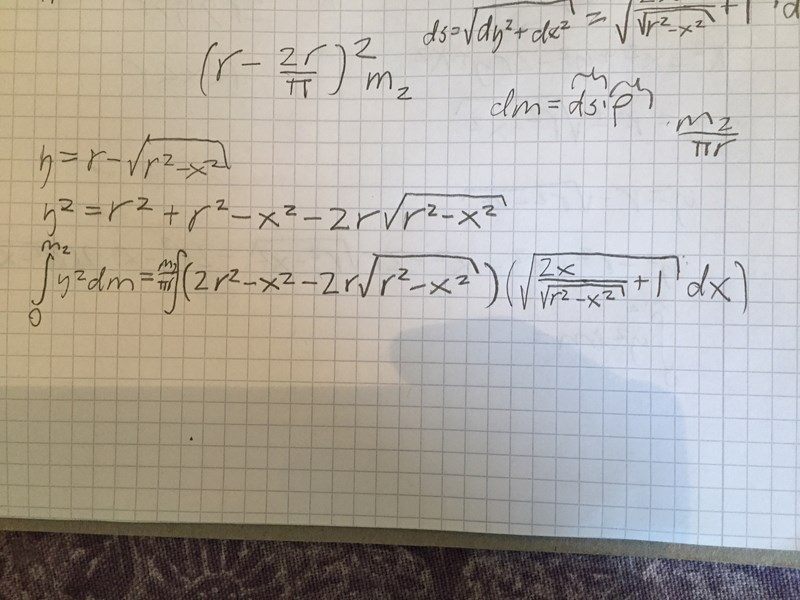 ds=√(dy²+dx²) = √(2x/√(r²-x²)+1) d
(r - 2r/π)² m₂
dm = ds·ρ
m₂/πr
y = r-√(r²-x²)
y² = r² + r²-x²-2r√(r²-x²)
∫₀^m₂ y²dm = m₂/πr ∫(2r²-x²-2r√(r²-x²))(√(2x/√(r²-x²)+1) dx)